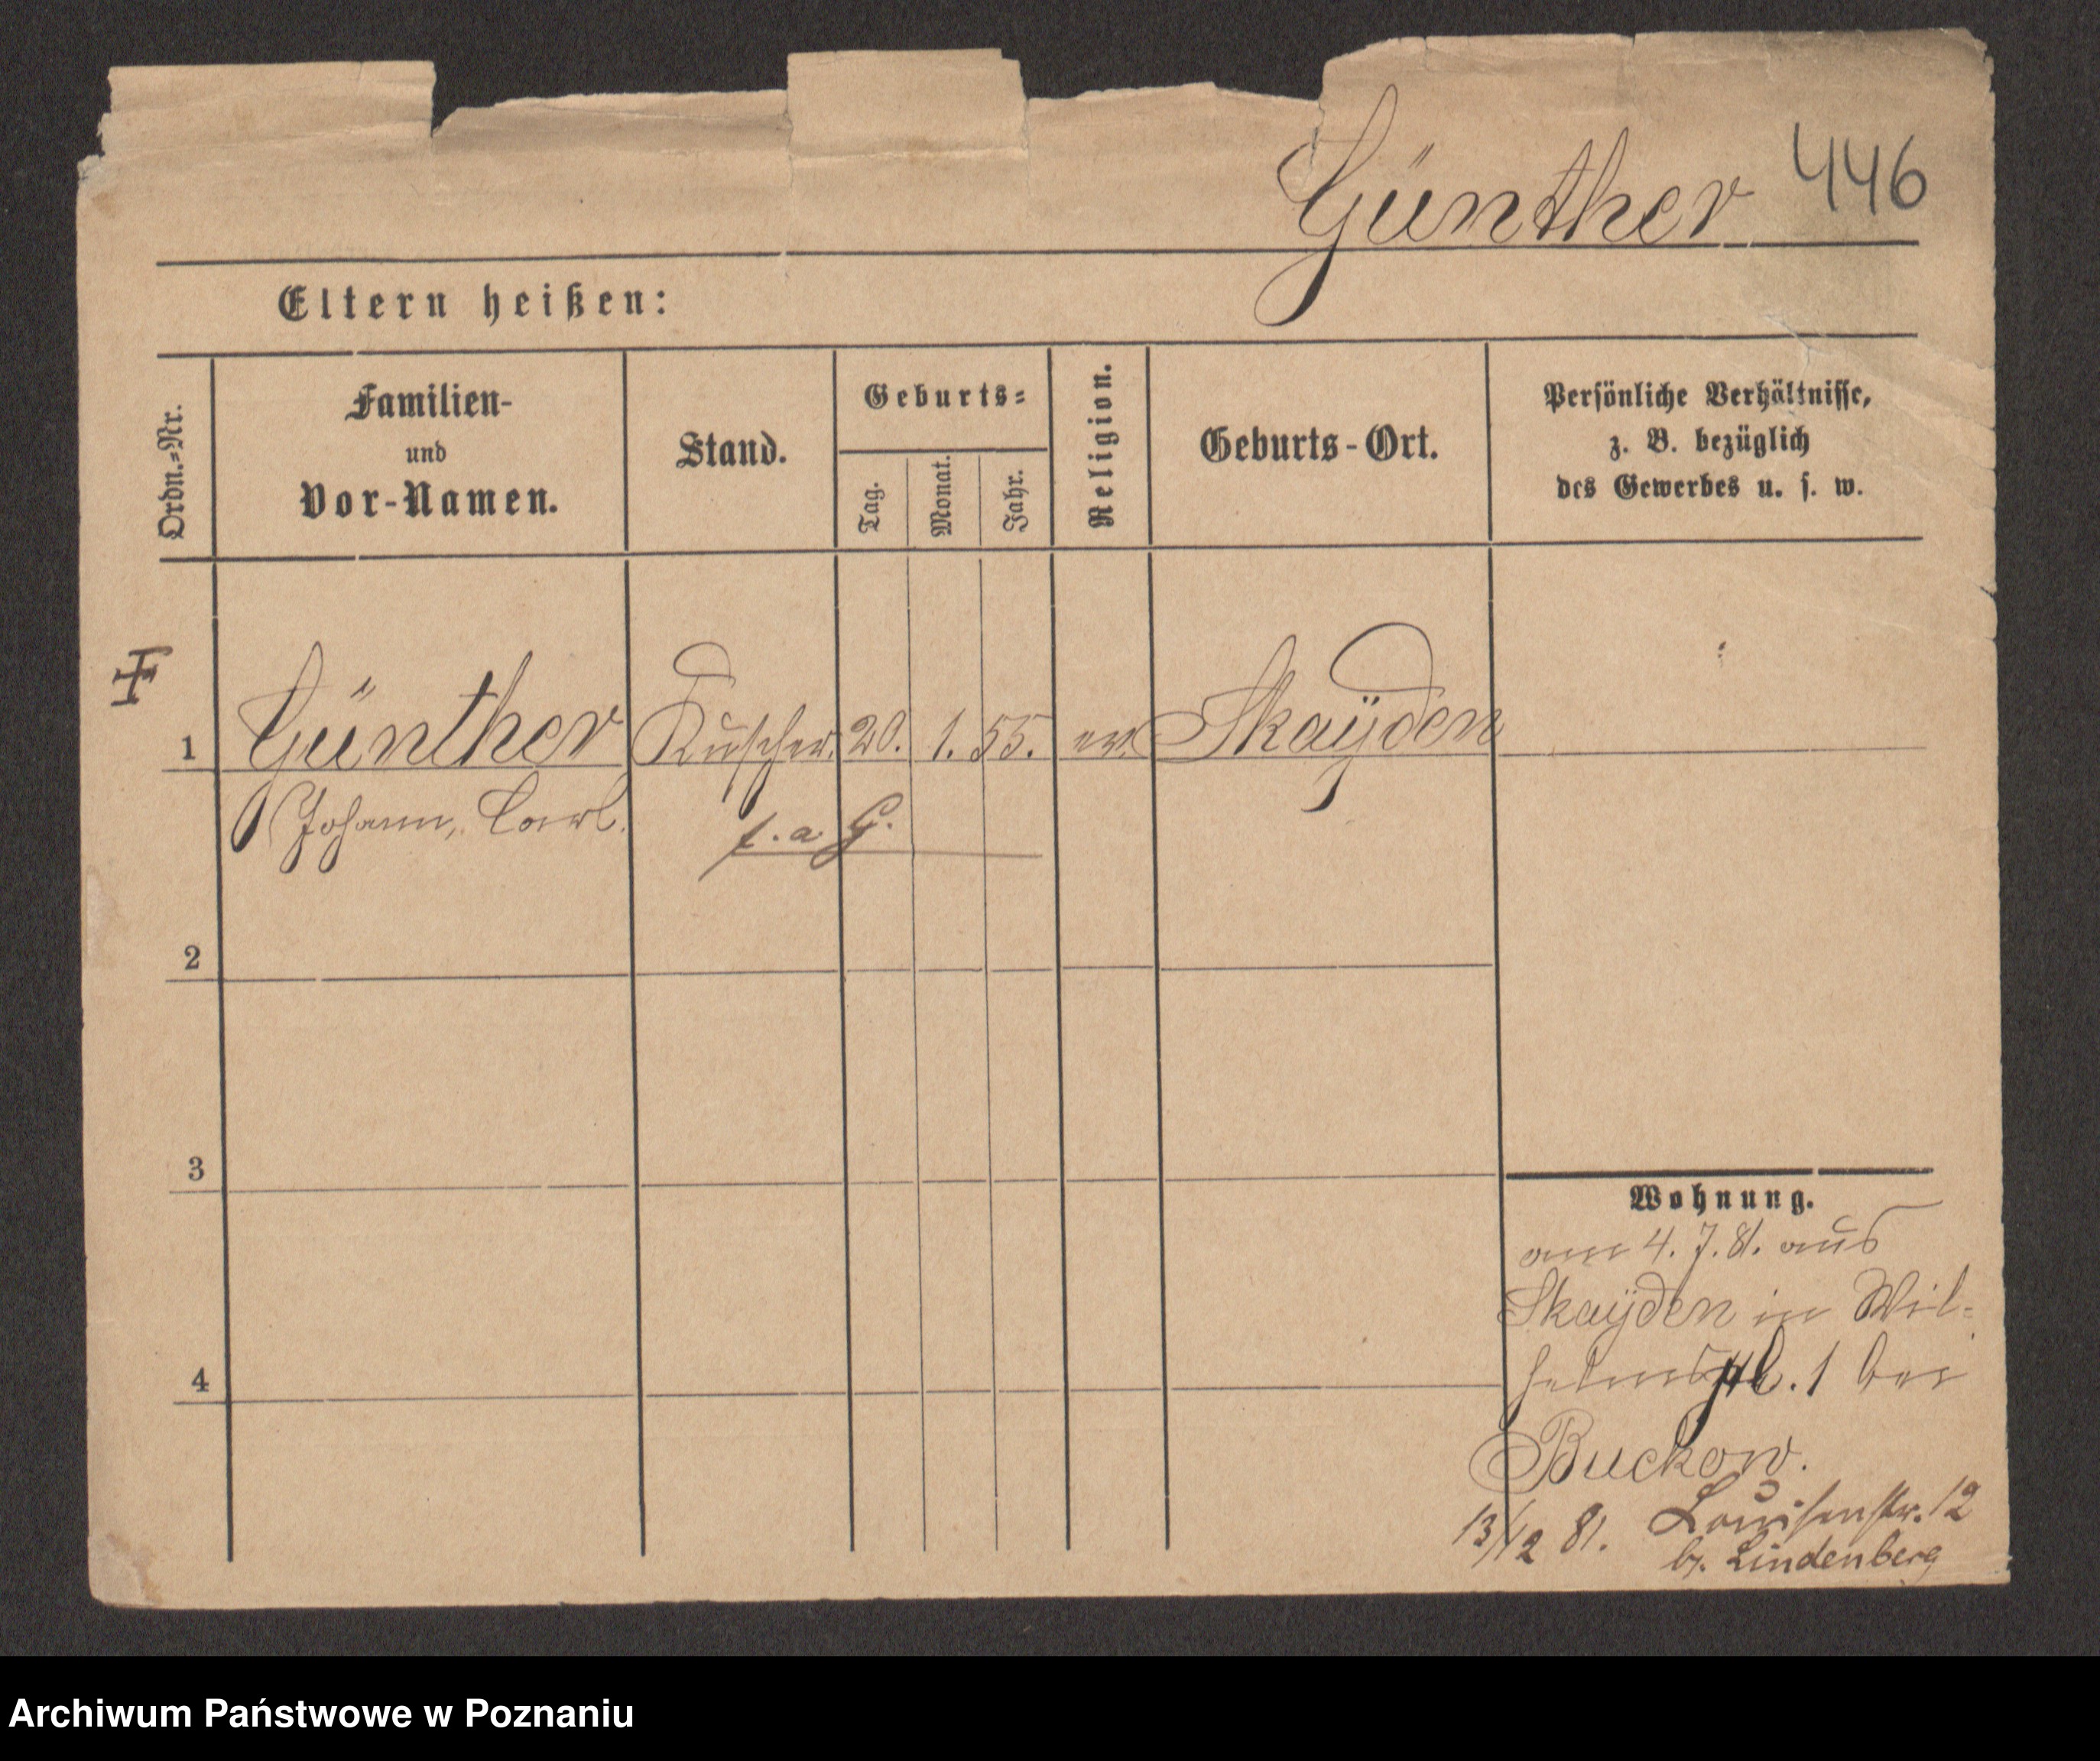 Günther 446
Eltern heißen:
Ordn.=Nr.
Familien-
und
Vor-Namen.
Stand.
Geburts=
Tag.
Monat.
Jahr.
Religion.
Geburts-Ort.
Persönliche Verhältnisse,
z. B. bezüglich
des Gewerbes u. s. w.
1 Günther Kutscher. 20. 1. 55. ev. Skaÿden
Johann, Carl.
2
3
4
Wohnung.
am 4. 7. 81. aus
Skaÿden in Wil-
helmspl. 1 bei
Buckow.
13/12 81. Louisenstr. 12
b. Lindenberg
Archiwum Państwowe w Poznaniu